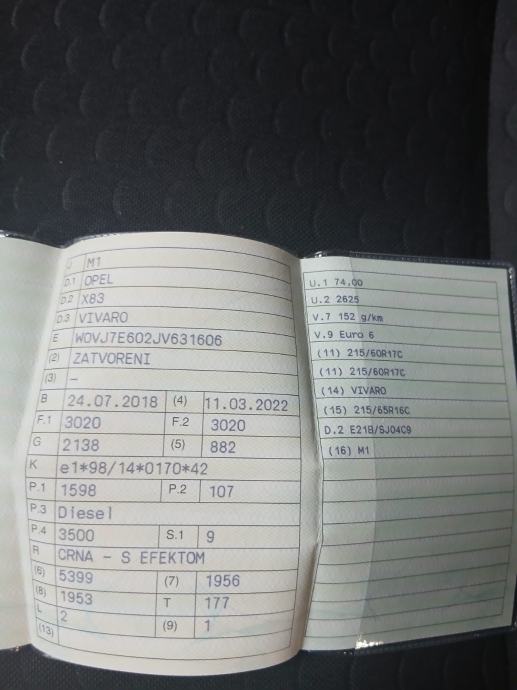 J M1
D.1 OPEL
D.2 X83
D.3 VIVARO
E W0VJ7E602JV631606
(2) ZATVORENI
(3) –
B 24.07.2018 (4) 11.03.2022
F.1 3020 F.2 3020
G 2138 (5) 882
K e1*98/14*0170*42
P.1 1598 P.2 107
P.3 Diesel
P.4 3500 S.1 9
R CRNA – S EFEKTOM
(6) 5399 (7) 1956
(8) 1953 T 177
L 2 (9) 1
(13)
U.1 74,00
U.2 2625
V.7 152 g/km
V.9 Euro 6
(11) 215/60R17C
(11) 215/60R17C
(14) VIVARO
(15) 215/65R16C
D.2 E21B/SJ04C9
(16) M1